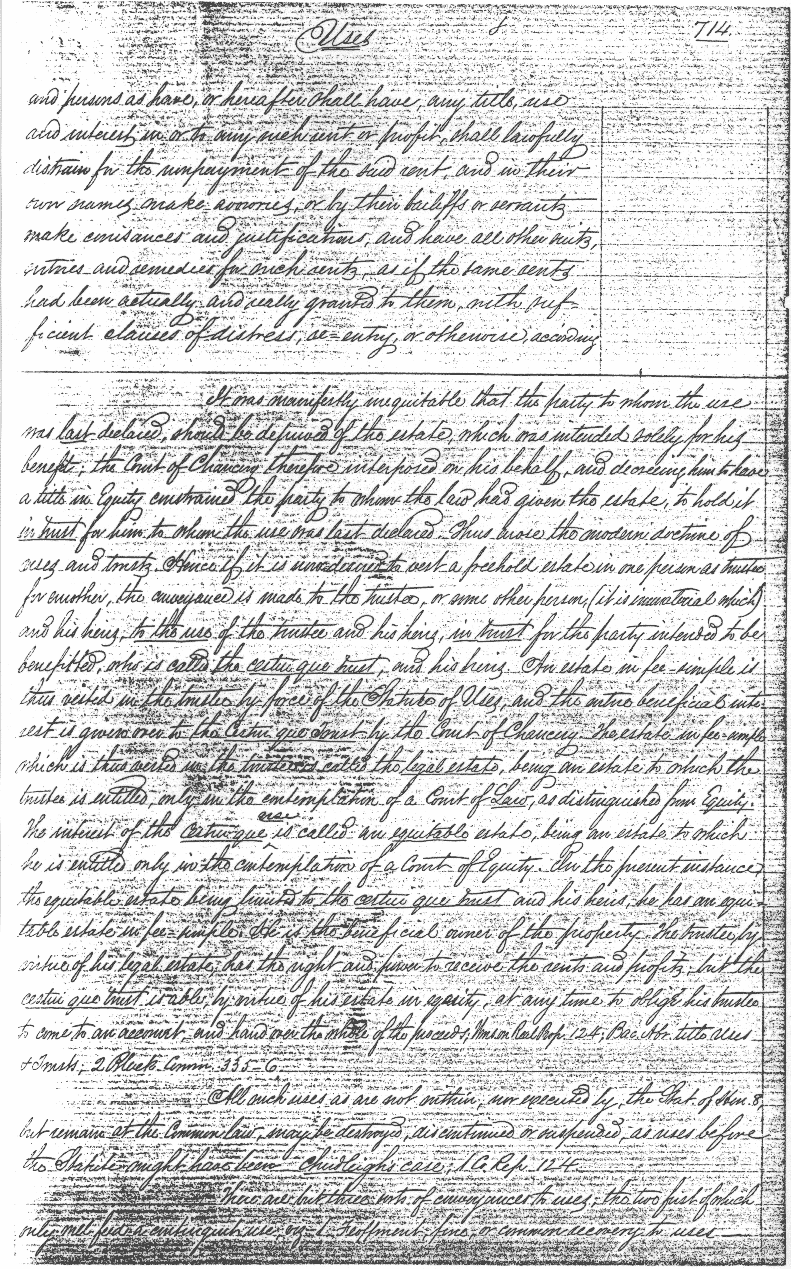 Uses
714.
and persons as have, or hereafter shall have, any title, use
and interest in or to any such rent or profit, shall lawfully
distrain for the nonpayment of the said rent, and in their
own names make avowries, or by their bailiffs or servants
make conisances and justifications, and have all other suits,
entries and remedies for such rents, as if the same rents
had been actually and really granted to them, with suf-
ficient clauses of distress, re=entry, or otherwise, according
It was manifestly inequitable that the party to whom the use
was last declared, should be deprived of the estate, which was intended solely for his
benefit; the Court of Chancery therefore interposed on his behalf, and decreeing him to have
a title in Equity constrained the party to whom the law had given the estate, to hold it
in trust for him to whom the use was last declared. Thus arose the modern doctrine of
uses and trusts. Hence if it is now desired to vest a freehold estate in one person as trustee
for another, the conveyance is made to the trustee, or some other person, (it is immaterial which)
and his heirs, to the use of the trustee and his heirs, in trust for the party intended to be
benefitted, who is called the cestui que trust, and his heirs. An estate in fee-simple is
thus vested in the trustee by force of the Statute of Uses, and the entire beneficial inte
rest is given over to the cestui que trust by the Court of Chancery. The estate in fee-simple
which is thus vested in the trustee is called the legal estate, being an estate to which the
trustee is entitled, only in the contemplation of a Court of Law, as distinguished from Equity.
The interest of the cestui que use is called an equitable estate, being an estate to which
he is entitled only in the contemplation of a Court of Equity. In the present instance,
the equitable estate being limited to the cestui que trust and his heirs, he has an equi-
table estate in fee-simple. He is the beneficial owner of the property. The trustee, by
virtue of his legal estate, has the right and power to receive the rents and profits, but the
cestui que trust is able, by virtue of his estate in equity, at any time to oblige his trustee
to come to an account, and hand over the whole of the proceeds; Wms on Real Prop. 124; Bac. Abr. title Uses
& Trusts; 2 Black. Comm. 335-6.
All such uses as are not within, nor executed by, the Stat. of Hen. 8,
but remain at the Common law, may be destroyed, discontinued or suspended, as uses before
the Statute might have been Chudleigh's case, 1 Co. Rep. 124.
There are but three sorts of conveyances to uses, the two first of which
only a contingent use; 1. Feoffment, fine, or common recovery to uses